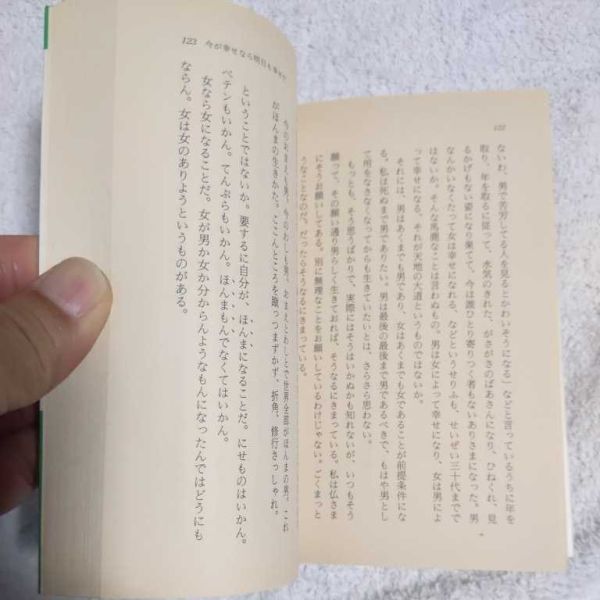 122
ないわ、男で苦労してる人を見るとかわいそうになる」などと言っているうちに年を
取り、年を取るに従って、水気のきれた、がさがさのばあさんになり、ひねくれ、見
るかげもない姿になり果てて、今は誰ひとり寄りつく者もないありさまになった。男
なんかいなくたって女は幸せになれる、などというせりふも、せいぜい三十代までで
はないか。そんな馬鹿なことは言わぬもの。男は女によって幸せになり、女は男によ
って幸せになる、それが天地の大道というものではないか。
それには、男はあくまでも男であり、女はあくまでも女であることが前提条件にな
る。私は死ぬまで男でありたい。男は最後の最後まで男であるべきで、もはや男とし
て用をなさなくなってからも生きていたいとは、さらさら思わない。
もっとも、そう思うばかりで、実際にはそうはいかぬかも知れないが、いつもそう
願って、その願い通り男らしく生きておれば、そうなるにきまっている。私は仏さま
にそうお願いしてある。別に無理なことをお願いしているわけじゃない。ごくまっと
うなことなのだ。だったらそうなるにきまっている。
123 今が幸せなら明日も幸せだ
今のおまえも男、今のわしも男、おまえとわしとで世界全部がほんまの男。これ
がほんまの生きかた。ここんところを蹴っつまずかず、折角、修行さっしゃれ。
ということではないか。要するに自分が、ほんまになることだ。にせものはいかん。
ペテンもいかん。てんぷらもいかん。ほんまもんでなくてはいかん。
女なら女になることだ。女が男か女か分からんようなもんになったんではどうにも
ならん。女は女のありようというものがある。